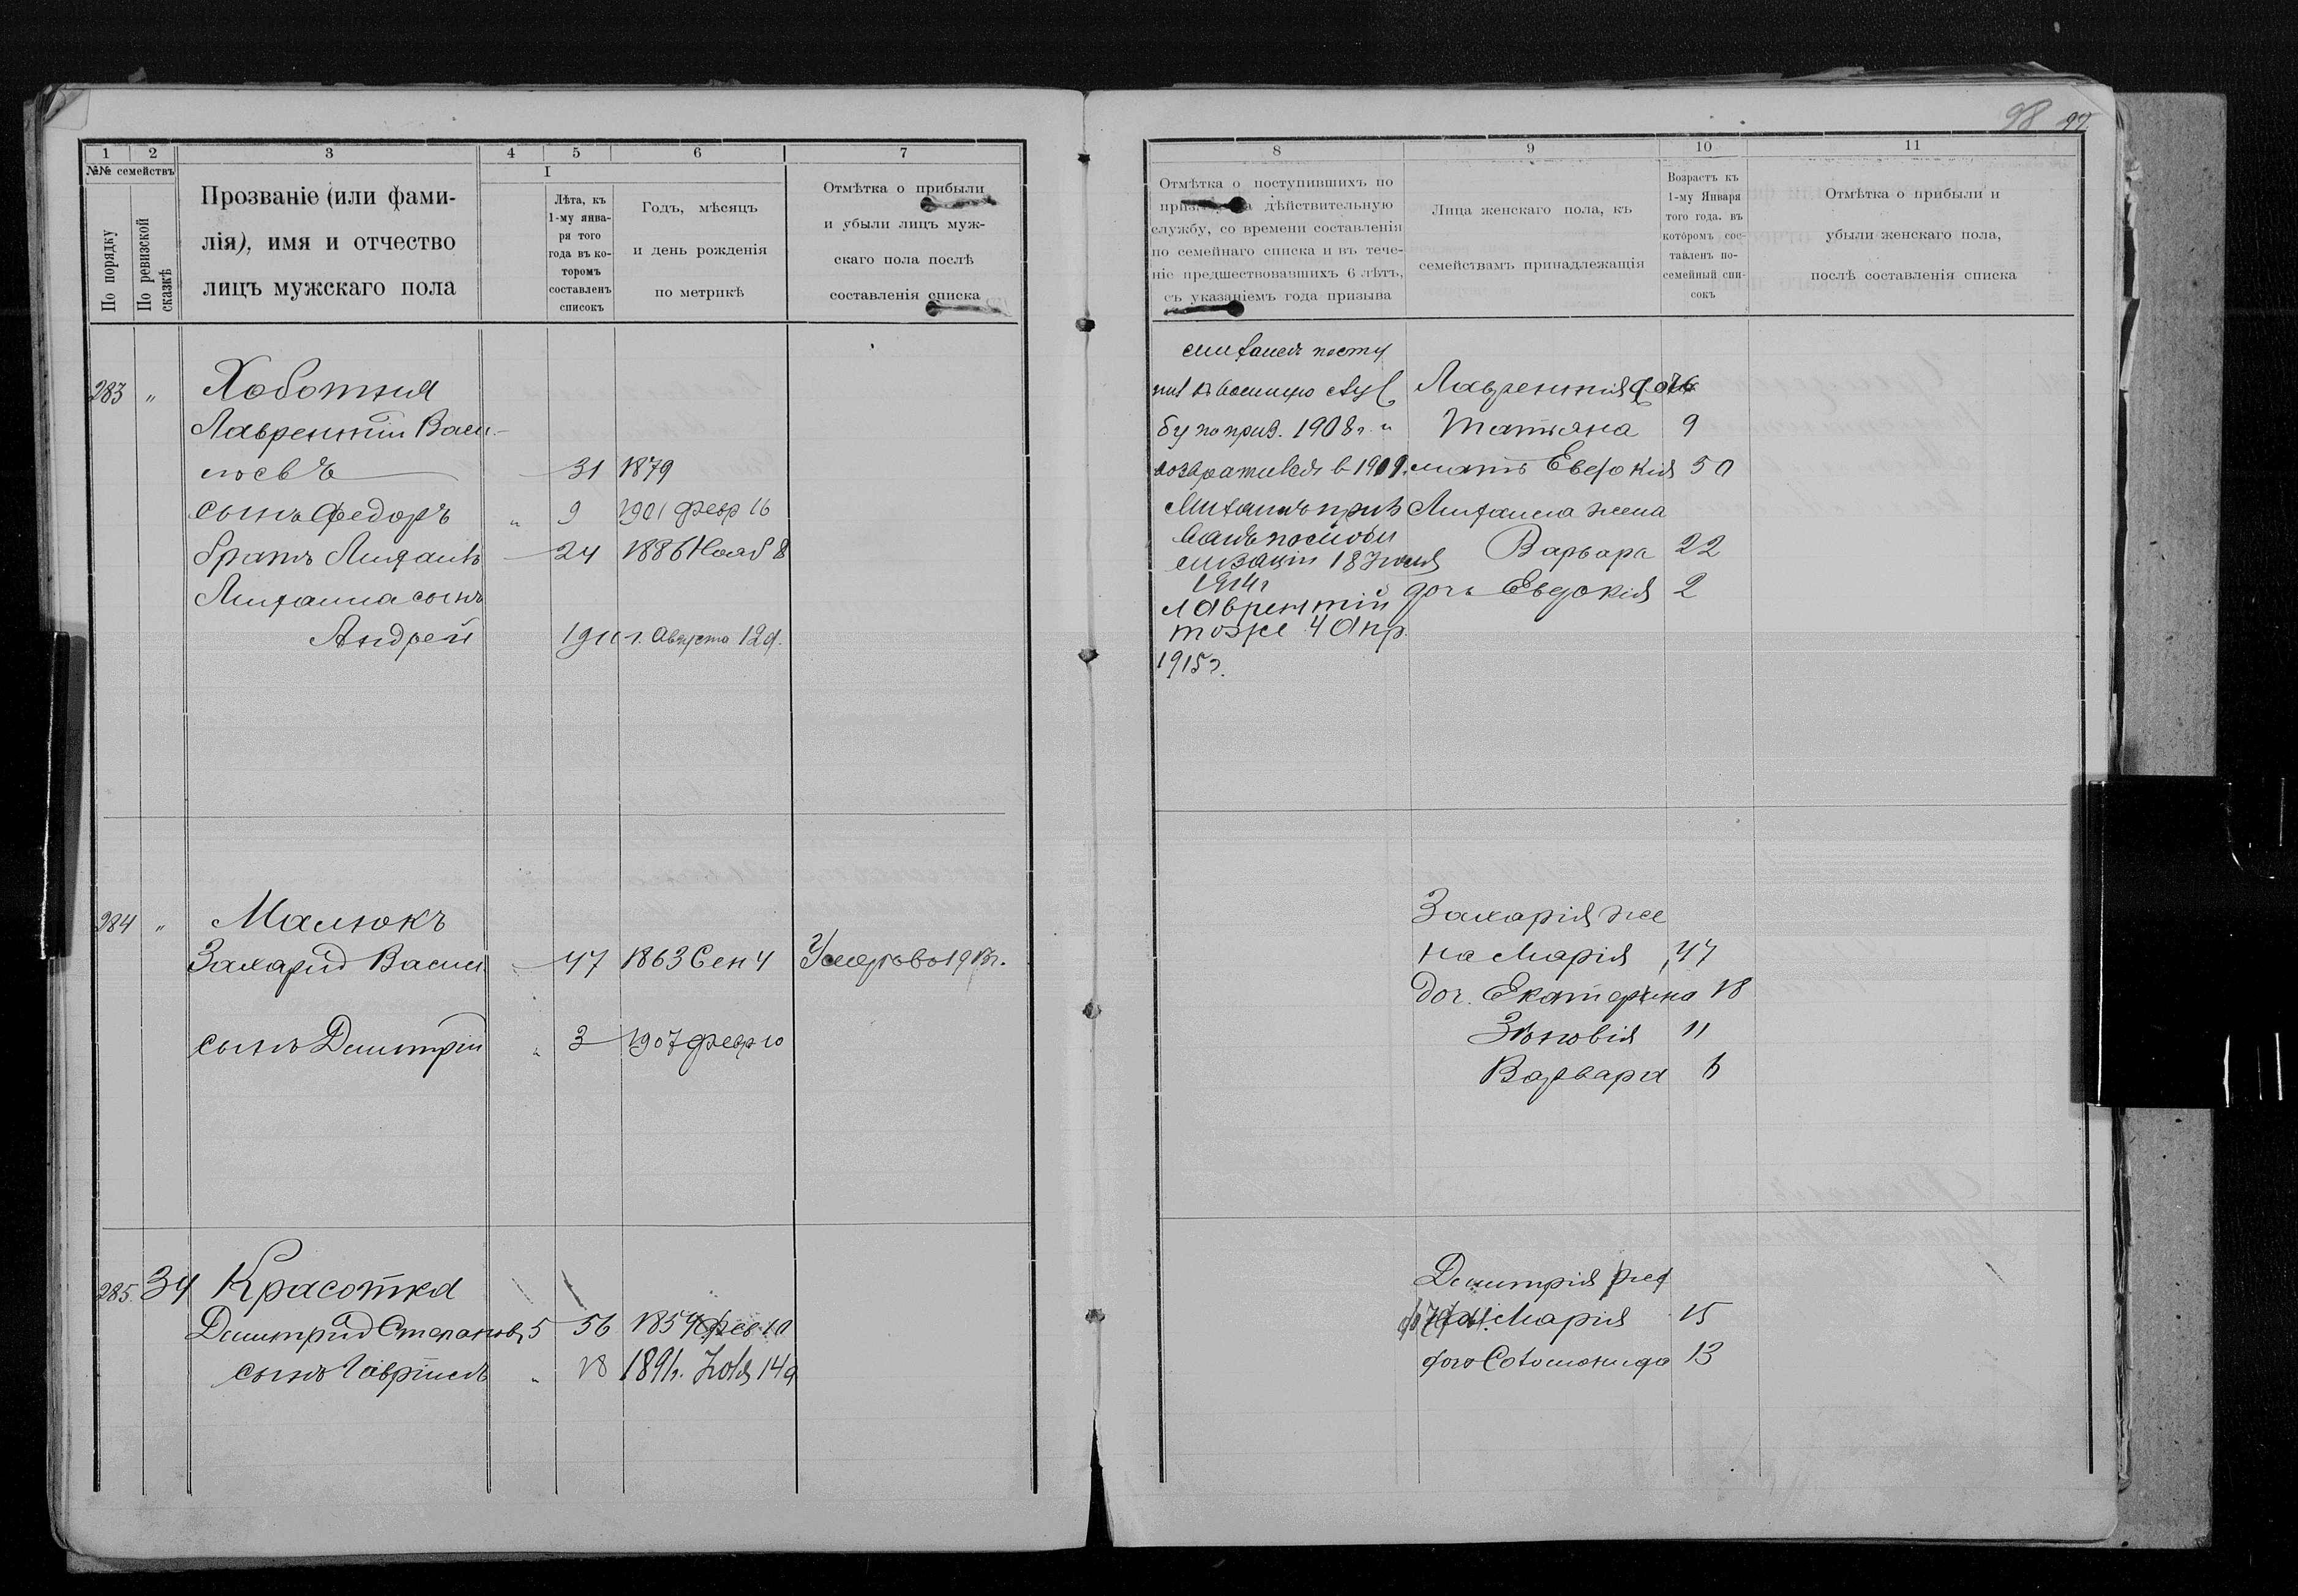 98 99
1 2 3 4 5 6 7
№№ семействъ
По порядку
По ревизской сказкѣ
Прозваніе (или фами-
лія), имя и отчество
лицъ мужскаго пола
I
Лѣта, къ
1-му янва-
ря того
года въ ко-
торомъ
составленъ
списокъ
Годъ, мѣсяцъ
и день рожденія
по метрикѣ
Отмѣтка о прибыли
и убыли лицъ муж-
скаго пола послѣ
составленія списка
283 " Хоботня
Лаврентій Васи-
льевъ 31 1879
сынъ Федоръ " 9 1901 февр 16
братъ 24 1886 Нояб 8
сынъ
Андрей 1911 г. Августа 12 д.
284 " Малюкъ
Захарій Васил 47 1863 Сен 4
сынъ Димитрій " 3 1907 февр 10
285. 34 Красотка
Димитрій Степановъ 5 56 1854 фев 10
сынъ Гавріилъ " 18 1891г. Іюля 14 д
8 9 10 11
Отмѣтка о поступившихъ по
дѣйствительную
службу, со времени составленія
по семейнаго списка и въ тече-
ніе предшествовавшихъ 6 лѣтъ,
съ указаніемъ года призыва
Лица женскаго пола, къ
семействамъ принадлежащія
Возрастъ къ
1-му Января
того года. въ
которомъ сос-
тавленъ по-
семейный спи-
сокъ
Отмѣтка о прибыли и
убыли женскаго пола,
послѣ составленія списка
посту
пил въ военную служ
бу по приз. 1908 г. и
возвратился в 1909.
приз
ванъ по моби
лизаціи 18 Іюля
1914 г
Лаврентій
тоже 4 апр.
1915 г.
Лаврентія доч
Татьяна 9
мать Евдокія 50
жена
Варвара 22
дочь Евдокія 2
Захарія же
на Марія 47
доч. Екатерина 18
Зѣновія 11
Варвара 6
Димитрія
Марія 15
13